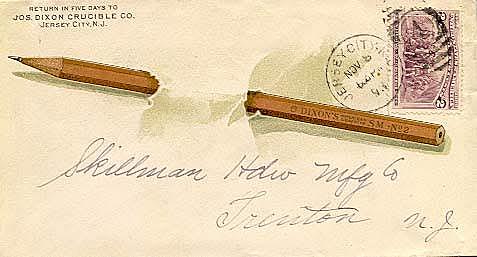 RETURN IN FIVE DAYS TO
JOS. DIXON CRUCIBLE CO.
JERSEY CITY, N.J.
JERSEY CITY, N.J.
NOV 6
DIXON'S
S M - No 2
Skillman Hdw Mfg Co
Trenton N.J.